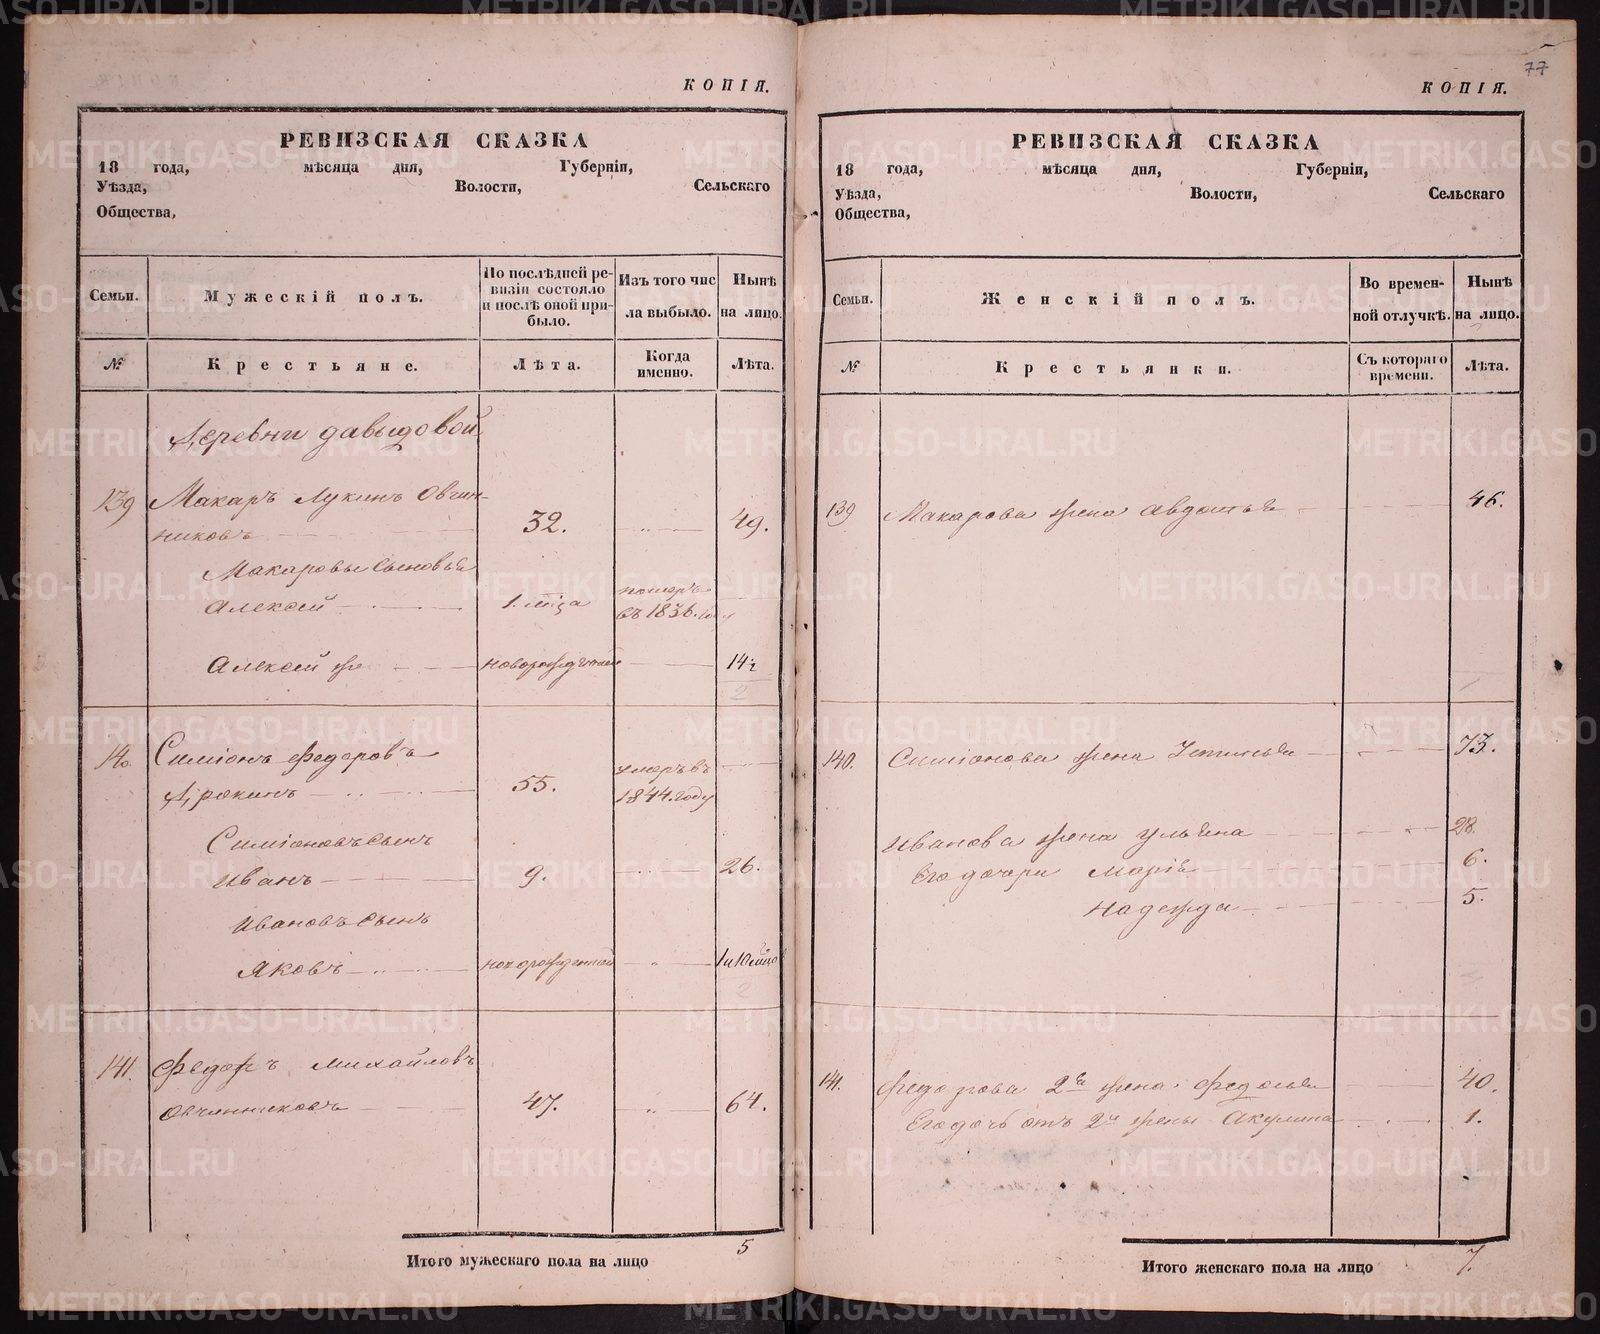 КОПІЯ.
РЕВИЗСКАЯ СКАЗКА
18 года, мѣсяца дня, Губерніи,
Уѣзда, Волости, Сельскаго
Общества,
Семьи. Мужескій полъ. По послѣдней ре-визіи состояло и послѣ оной при-было. Изъ того чис ла выбыло. Нынѣ на лицо.
№ Крестьяне. Лѣта. Когда именно. Лѣта.
Деревни давыдовой
139 Макаръ Лукинъ Овчин-
никовъ 32. 49.
Макаровы сыновья
Алексей 1. мца померъ
въ 1836.
Алексей же новорожденный 14½
2
140. Симіонъ Федоровъ умеръ въ
Дрокинъ 55. 1844. году
Симіоновъ сынъ
Иванъ 9. 26.
Ивановъ сынъ
Яковъ новорожденный 1 и 10 мцов
2
141. Федоръ Михайловъ
Овчинниковъ 47. 64.
Итого мужескаго пола на лицо 5
77
КОПІЯ.
РЕВИЗСКАЯ СКАЗКА
18 года, мѣсяца дня, Губерніи,
Уѣзда, Волости, Сельскаго
Общества,
Семьи. Женскій полъ. Во времен-ной отлучкѣ. Нынѣ на лицо.
№ Крестьянки. Съ котораго времени. Лѣта.
139 Макарова жена Авдотья 46.
1
140. Симіонова жена Устинья 73.
Иванова жена Ульяна 28.
Его дочери Марія 6.
Надежда 5.
141. Федорова 2я жена Федосья 40.
Его дочь отъ 2й жены Акулина 1.
Итого женскаго пола на лицо 7.
METRIKI.GASO-URAL.RU